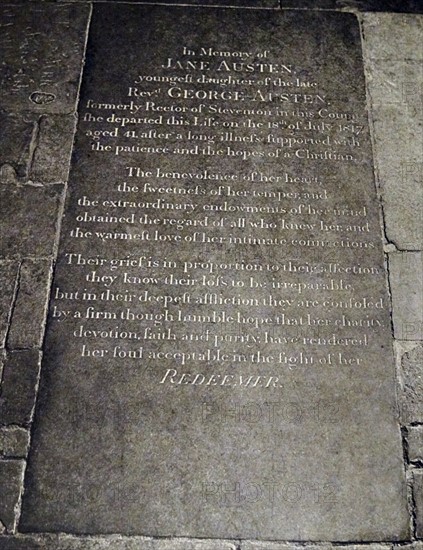 In Memory of
JANE AUSTEN,
youngeſt daughter of the late
Revd. GEORGE AUSTEN,
formerly Rector of Steventon in this County
ſhe departed this Life on the 18th of July 1817,
aged 41, after a long illneſs ſupported with
the patience and the hopes of a Chriſtian.
The benevolence of her heart,
the ſweetneſs of her temper, and
the extraordinary endowments of her mind
obtained the regard of all who knew her, and
the warmeſt love of her intimate connections.
Their grief is in proportion to their affection
they know their loſs to be irreparable,
but in their deepeſt affliction they are conſoled
by a firm though humble hope that her charity,
devotion, faith and purity, have rendered
her ſoul acceptable in the ſight of her
REDEEMER.